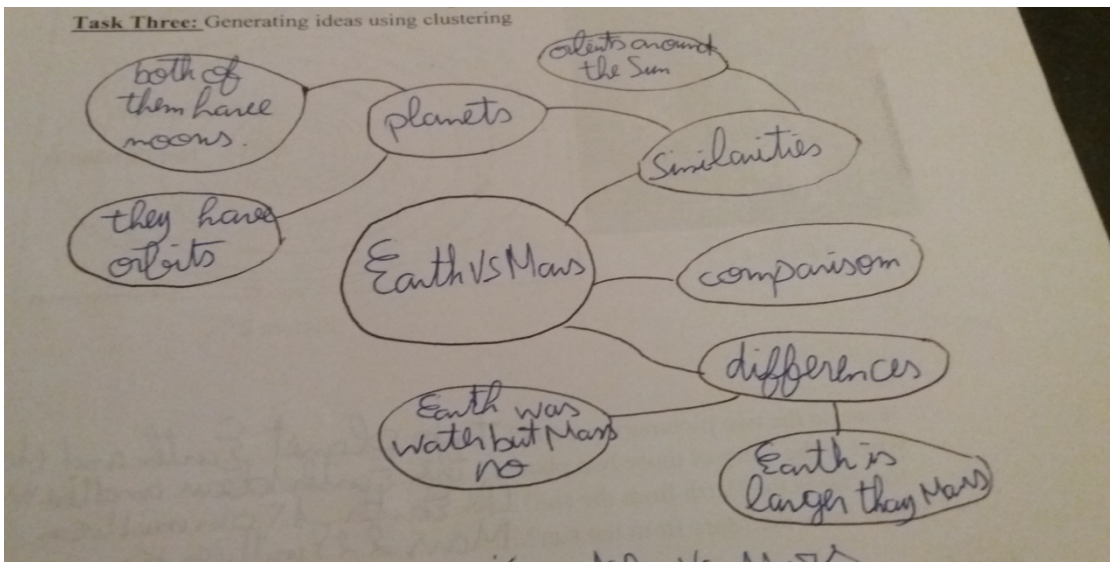 Task Three: Generating ideas using clustering
both of
them have
moons.
planets
orbits around
the Sun
Similarities
they have
orbits
Earth VS Mars
comparisom
differences
Earth was
water but Mars
no
Earth is
larger than Mars